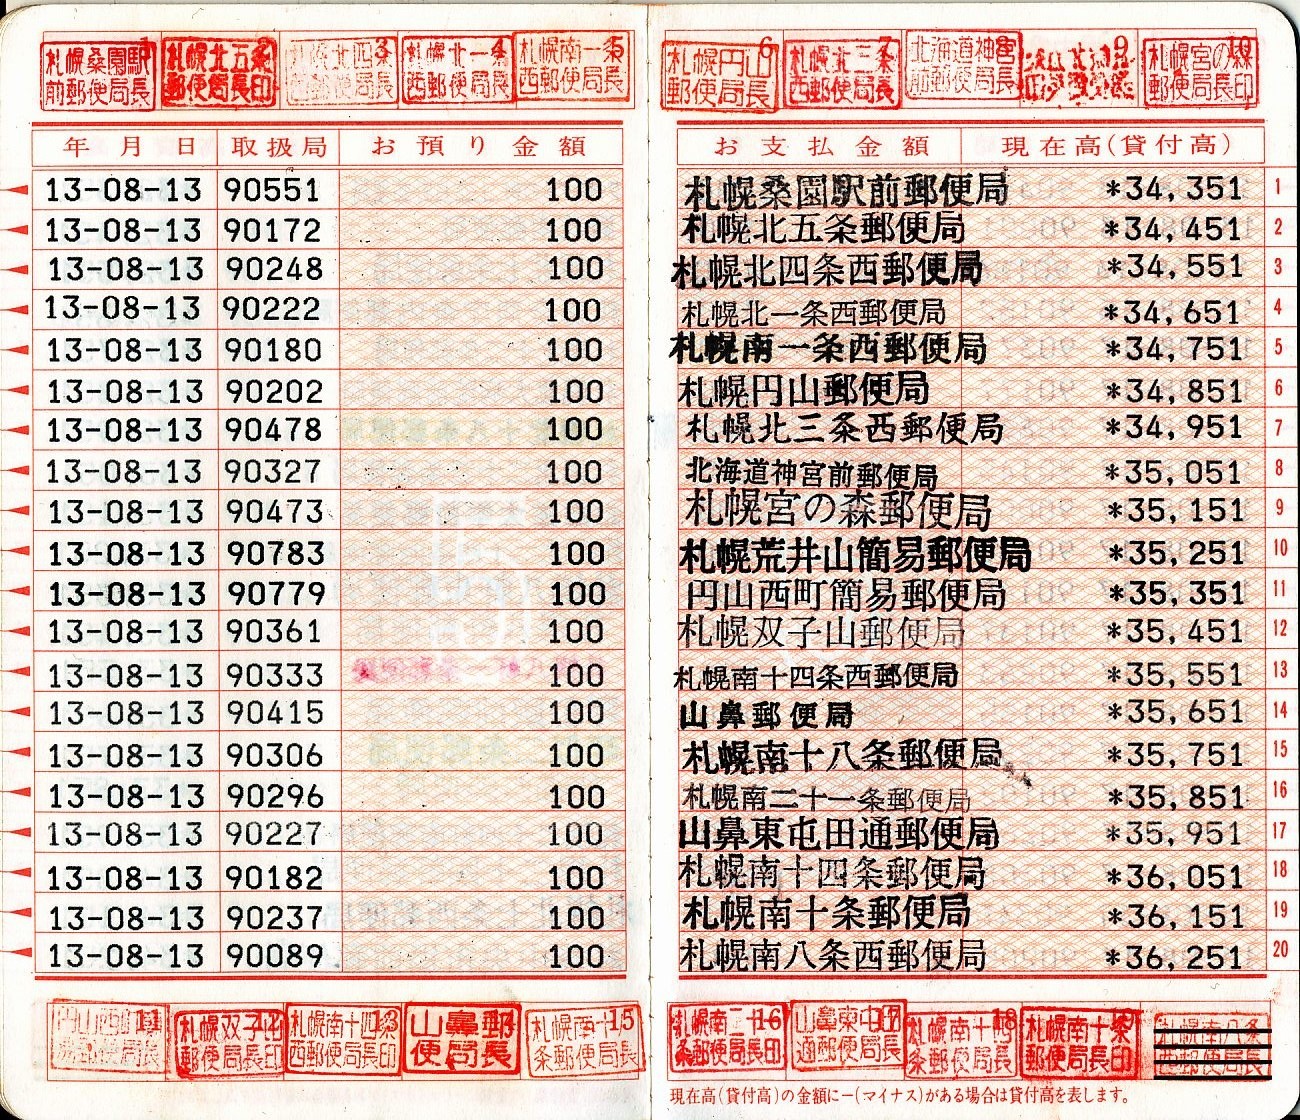 札幌桑園駅前郵便局長 1
札幌北五条郵便局長印 2
札幌北四条西郵便局長 3
札幌北一条西郵便局長 4
札幌南一条西郵便局長 5
札幌円山郵便局長 6
札幌北三条西郵便局長 7
北海道神宮前郵便局長 8
9
札幌宮の森郵便局長印 10
年月日 取扱局 お預り金額 お支払金額 現在高(貸付高)
13-08-13 90551 100 札幌桑園駅前郵便局 *34,351 1
13-08-13 90172 100 札幌北五条郵便局 *34,451 2
13-08-13 90248 100 札幌北四条西郵便局 *34,551 3
13-08-13 90222 100 札幌北一条西郵便局 *34,651 4
13-08-13 90180 100 札幌南一条西郵便局 *34,751 5
13-08-13 90202 100 札幌円山郵便局 *34,851 6
13-08-13 90478 100 札幌北三条西郵便局 *34,951 7
13-08-13 90327 100 北海道神宮前郵便局 *35,051 8
13-08-13 90473 100 札幌宮の森郵便局 *35,151 9
13-08-13 90783 100 札幌荒井山簡易郵便局 *35,251 10
13-08-13 90779 100 円山西町簡易郵便局 *35,351 11
13-08-13 90361 100 札幌双子山郵便局 *35,451 12
13-08-13 90333 100 札幌南十四条西郵便局 *35,551 13
13-08-13 90415 100 山鼻郵便局 *35,651 14
13-08-13 90306 100 札幌南十八条郵便局 *35,751 15
13-08-13 90296 100 札幌南二十一条郵便局 *35,851 16
13-08-13 90227 100 山鼻東屯田通郵便局 *35,951 17
13-08-13 90182 100 札幌南十四条郵便局 *36,051 18
13-08-13 90237 100 札幌南十条郵便局 *36,151 19
13-08-13 90089 100 札幌南八条西郵便局 *36,251 20
11
札幌双子山郵便局長印 12
札幌南十四条西郵便局長印 13
山鼻郵便局長
15
札幌南二十一条郵便局長印 16
山鼻東屯田通郵便局長 17
札幌南十四条郵便局長 18
札幌南十条郵便局長印
札幌南八条西郵便局長
現在高(貸付高)の金額に−(マイナス)がある場合は貸付高を表します。